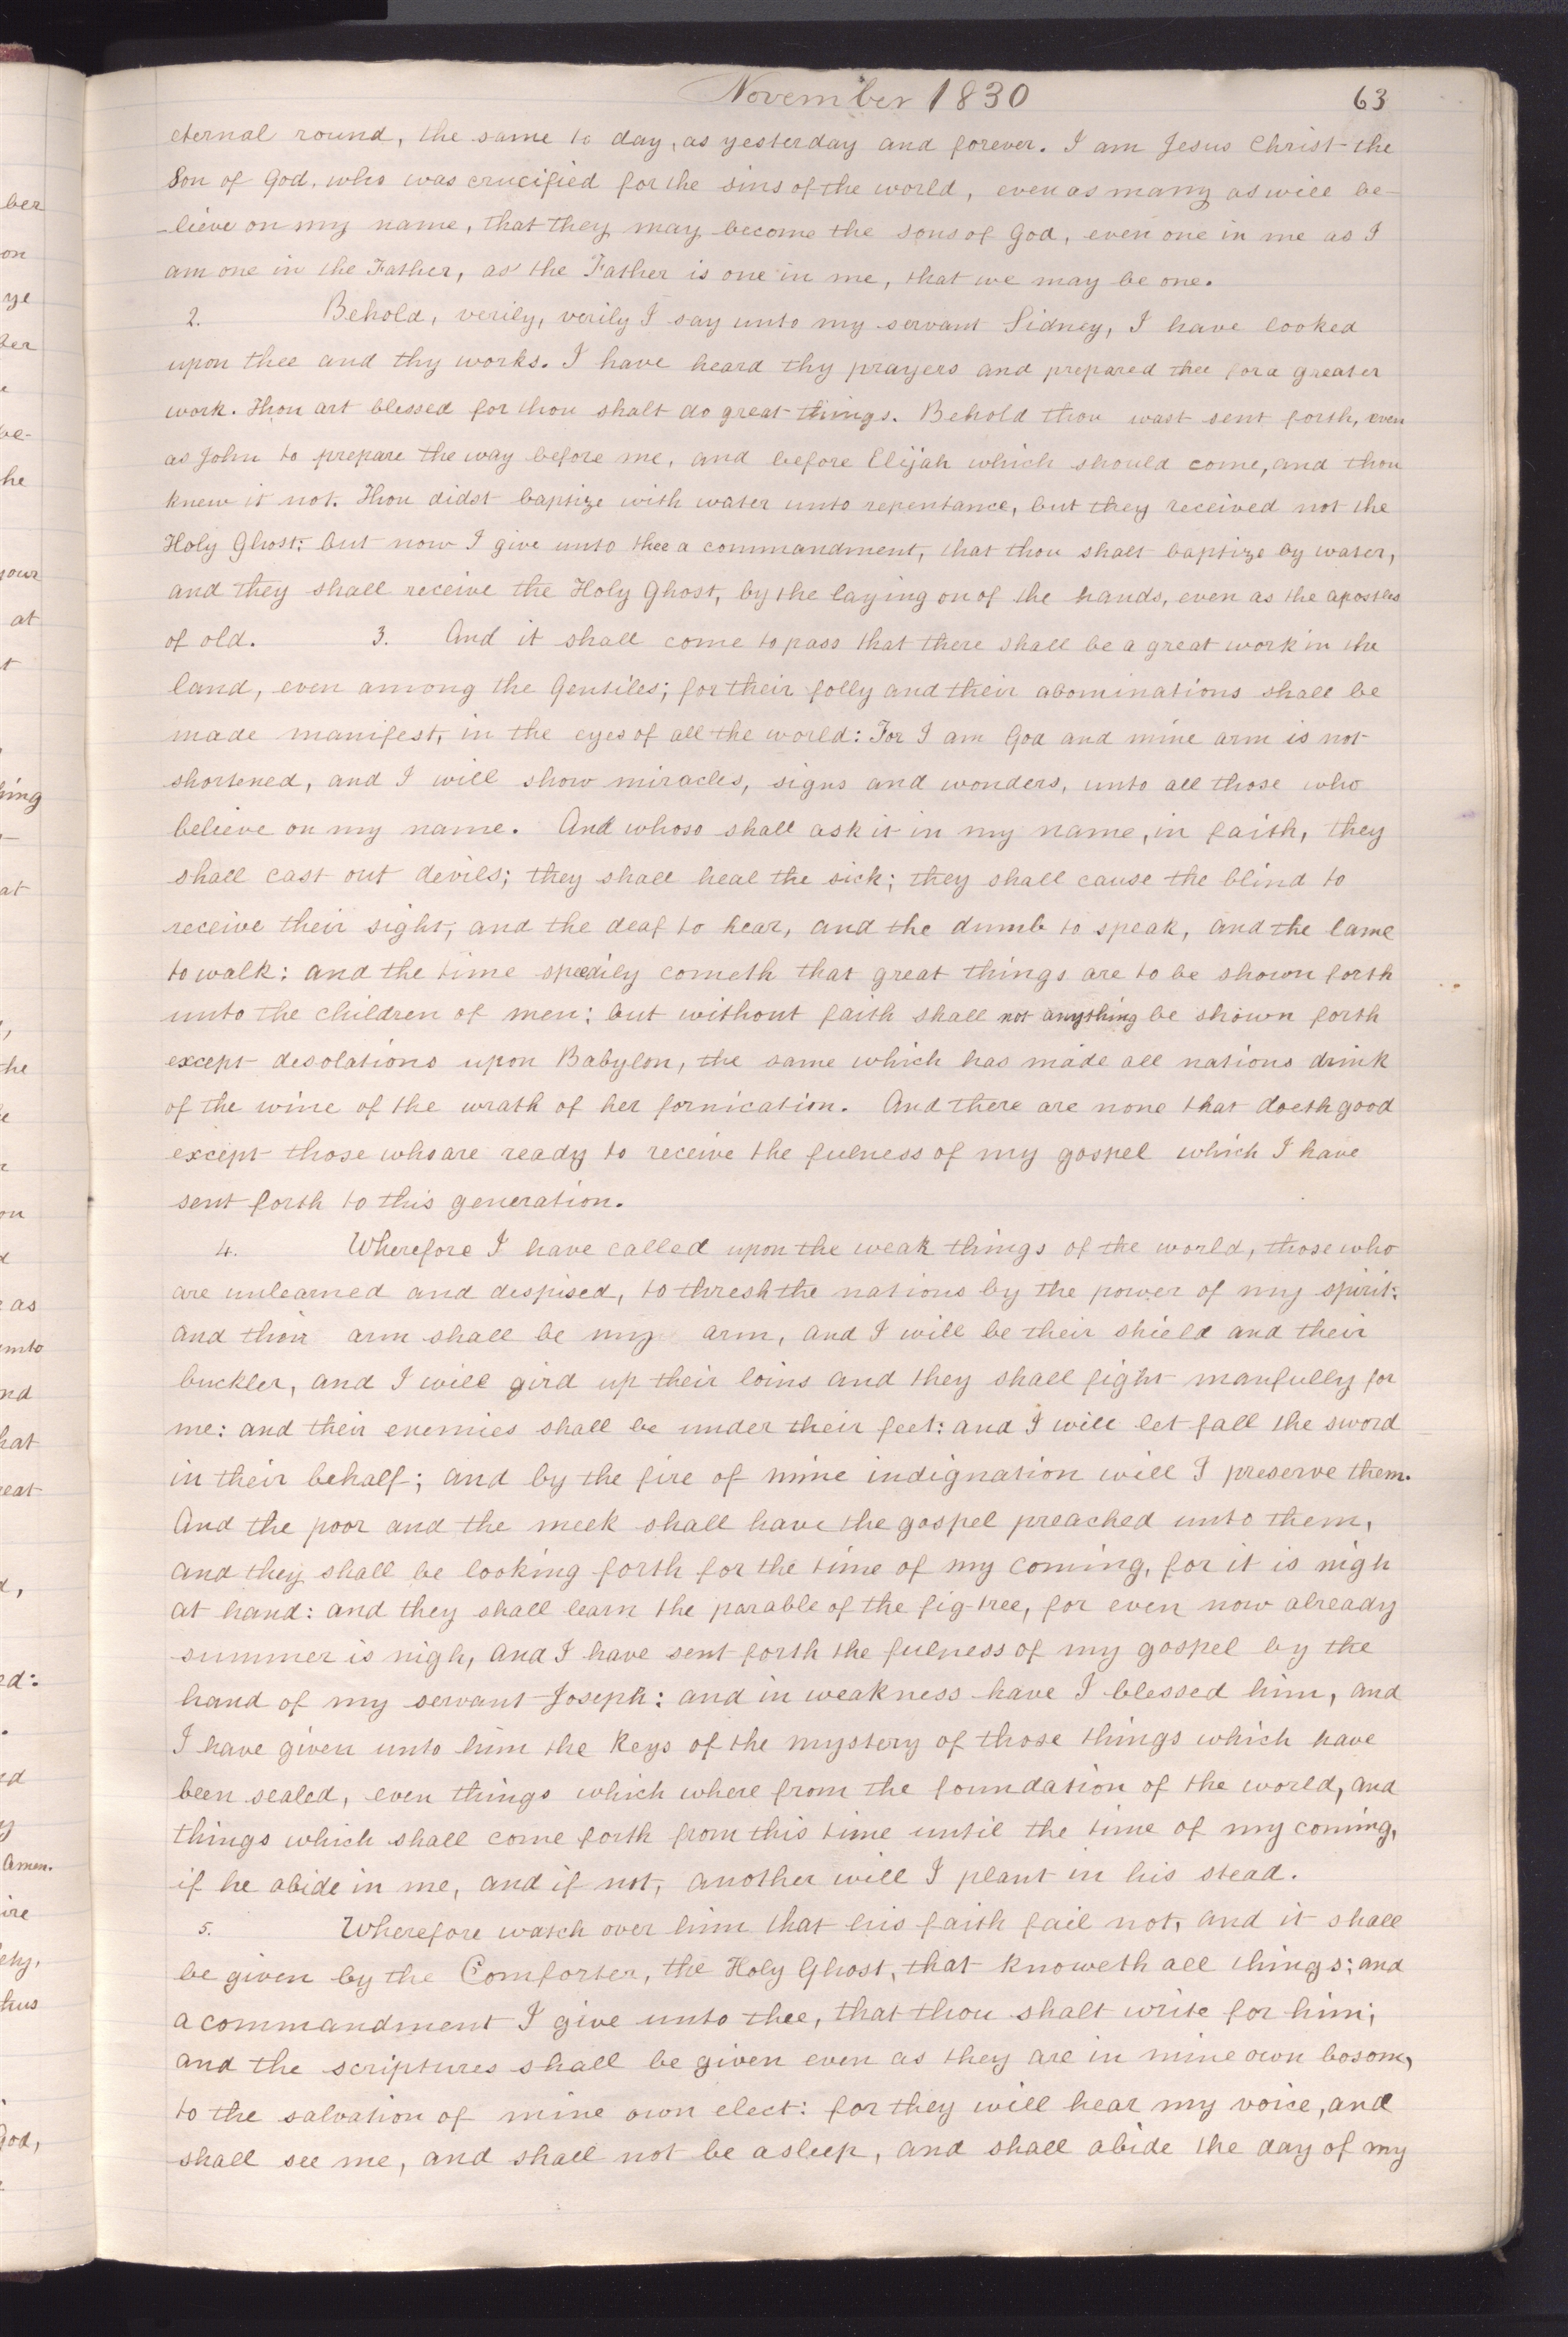 November 1830 63
eternal round, the same to day, as yesterday and forever. I am Jesus Christ the
Son of God, who was crucified for the sins of the world, even as many as will be-
-lieve on my name, that they may become the sons of God, even one in me as I
am one in the Father, as the Father is one in me, that we may be one.
2. Behold, verily, verily I say unto my servant Sidney, I have looked
upon thee and thy works. I have heard thy prayers and prepared thee for a greater
work. Thou art blessed for thou shalt do great things. Behold thou wast sent forth, even
as John to prepare the way before me, and before Elijah which should come, and thou
knew it not. Thou didst baptize with water unto repentance, but they received not the
Holy Ghost: but now I give unto thee a commandment, that thou shalt baptize by water,
and they shall receive the Holy Ghost, by the laying on of the hands, even as the apostles
of old. 3. And it shall come to pass that there shall be a great work in the
land, even among the Gentiles; for their folly and their abominations shall be
made manifest, in the eyes of all the world: For I am God and mine arm is not
shortened, and I will show miracles, signs and wonders, unto all those who
believe on my name. And whoso shall ask it in my name, in faith, they
shall cast out devils; they shall heal the sick; they shall cause the blind to
receive their sight, and the deaf to hear, and the dumb to speak, and the lame
to walk: and the time speedily cometh that great things are to be shown forth
unto the children of men: but without faith shall not anything be shown forth
except desolations upon Babylon, the same which has made all nations drink
of the wine of the wrath of her fornication. And there are none that doeth good
except those who are ready to receive the fulness of my gospel which I have
sent forth to this generation.
4. Wherefore I have called upon the weak things of the world, those who
are unlearned and despised, to thresh the nations by the power of my spirit:
and their arm shall be my arm, and I will be their shield and their
buckler, and I will gird up their loins and they shall fight manfully for
me: and their enemies shall be under their feet: and I will let fall the sword
in their behalf; and by the fire of mine indignation will I preserve them.
And the poor and the meek shall have the gospel preached unto them,
and they shall be looking forth for the time of my coming, for it is nigh
at hand: and they shall learn the parable of the fig-tree, for even now already
summer is nigh, and I have sent forth the fulness of my gospel by the
hand of my servant Joseph: and in weakness have I blessed him, and
I have given unto him the keys of the mystery of those things which have
been sealed, even things which where from the foundation of the world, and
things which shall come forth from this time until the time of my coming,
if he abide in me, and if not, another will I plant in his stead.
5. Wherefore watch over him that his faith fail not, and it shall
be given by the Comforter, the Holy Ghost, that knoweth all things: and
a commandment I give unto thee, that thou shalt write for him;
and the scriptures shall be given even as they are in mine own bosom,
to the salvation of mine own elect: for they will hear my voice, and
shall see me, and shall not be asleep, and shall abide the day of my